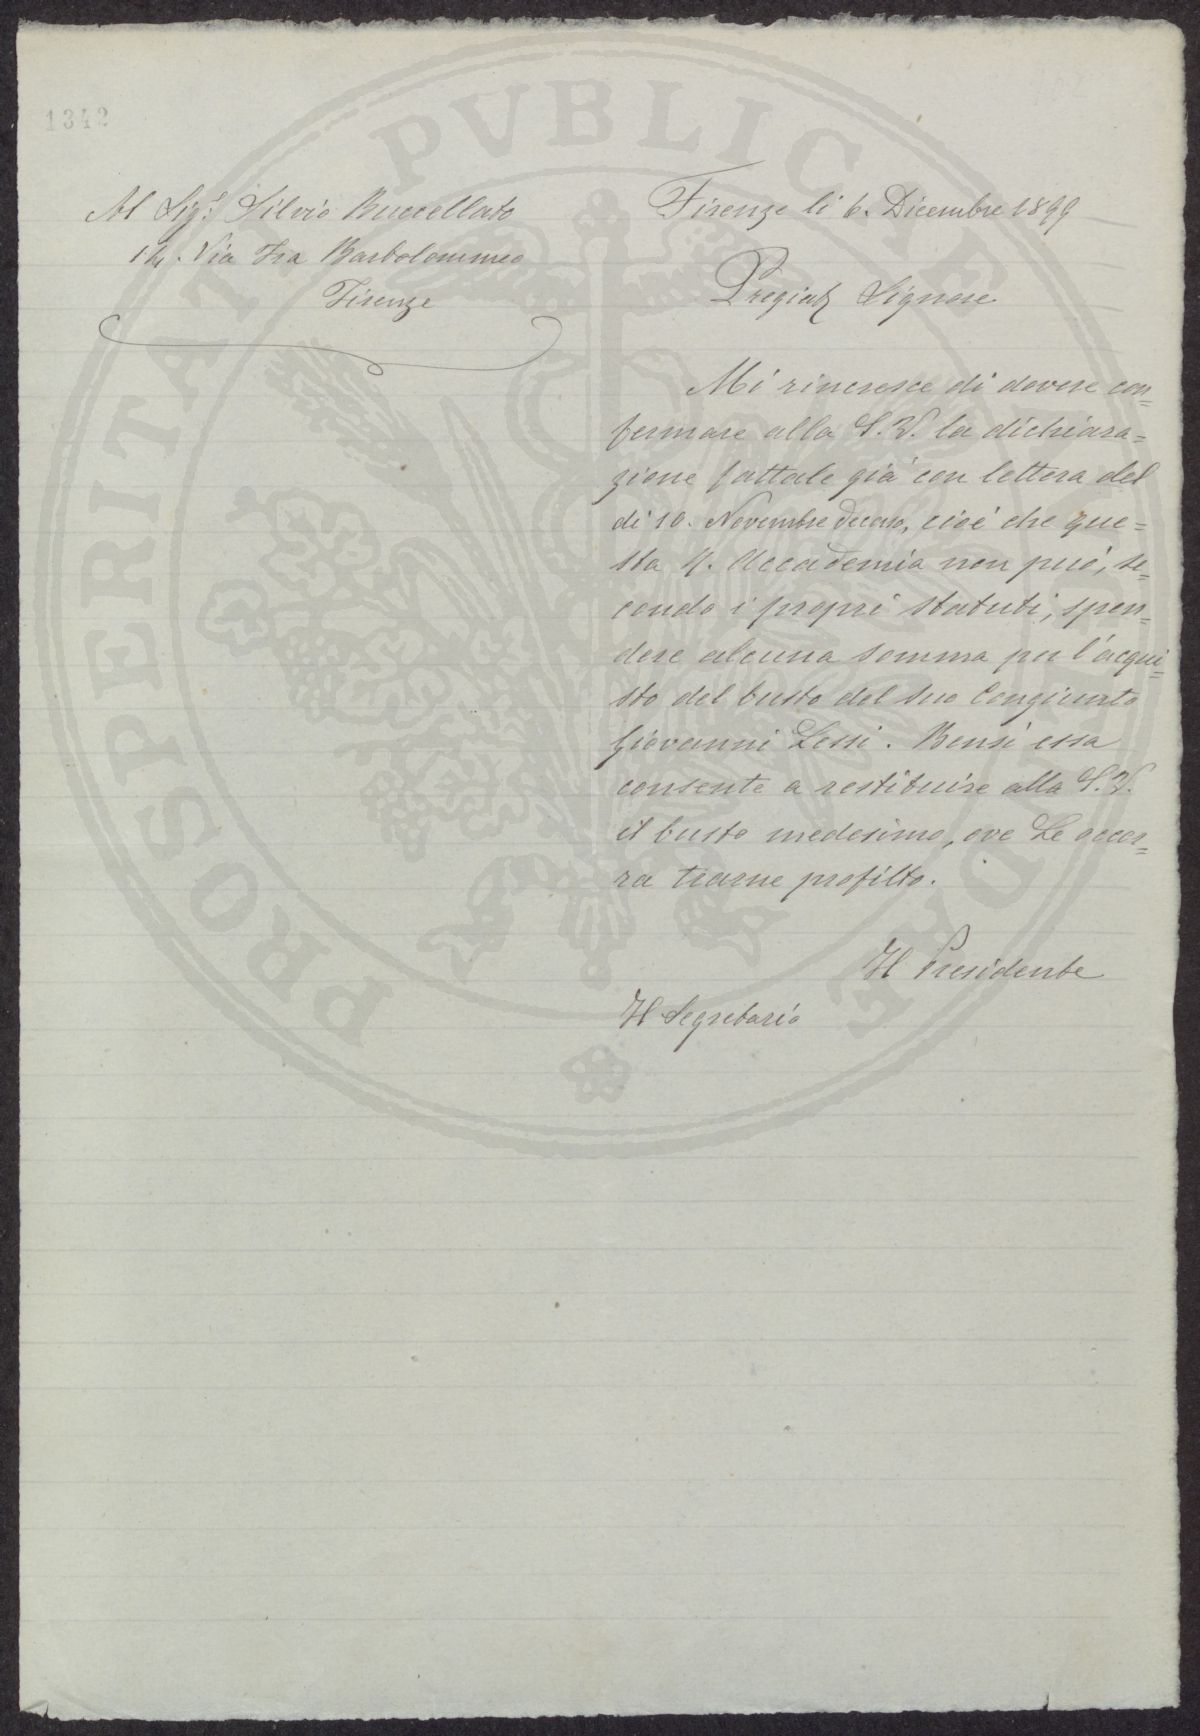 1342
Al Sig.r Silvio Buccellato
14. Via Fra Bartolommeo
Firenze
Firenze li 6. Dicembre 1899
Pregiat. Signore
Mi rincresce di dovere con=
fermare alla S. V. la dichiara=
zione fattale già con lettera del
di 10. Novembre decorso, cioè che que=
sta R. Accademia non può, se=
condo i propri statuti, spen=
dere alcuna somma per l'acqui=
sto del busto del suo Congiunto
Giovanni Lessi. Bensì essa
consente a restituire alla S. V.
il busto medesimo, ove Le occor=
ra trarne profitto.
Il Presidente
Il Segretario
PROSPERITATI PVBLICAE